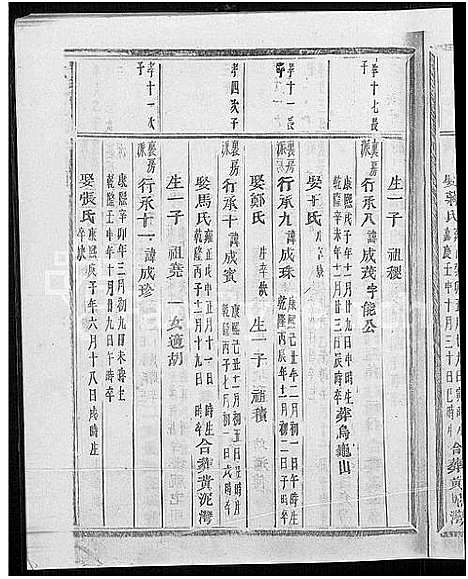 孝十七長子
襄房派
生一子 祖稷
行承八 諱成茂 字能公
康熙戊子年十一月廿九日申時生
乾隆辛未年十二月廿三日辰時卒 葬烏龜山
娶王氏
孝十一長子
襄房派
行承九 諱成珠
康熙己丑年二月初一日午時生
乾隆丙辰年十一月初二日子時
娶鄭氏 生卒缺
生一子 祖積
孝四次子
襄房派
行承十 諱成賓
康熙己丑年十一月初五日
乾隆丙子年七月初一日戌時卒
娶馬氏
雍正戊申正月十一日 時生
乾隆丙子十二月十九日 時卒 合葬黃泥灣
生一子 祖堯 一女適胡
孝十一次子
襄房派
行承十一 諱成珍
康熙辛卯年三月初九日未時生
乾隆壬申年十月廿九日午時卒
娶張氏
康熙庚子年六月十八日戌時生
卒缺